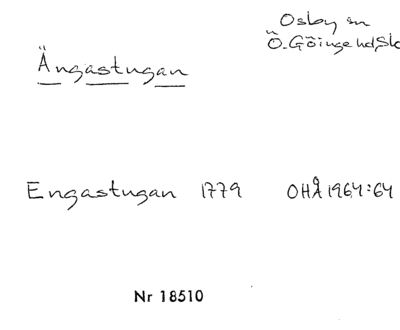 Osby sn
Ö. Göinge hd, Sk
Ängastugan
Engastugan 1779 OHÅ 1964:64
Nr 18510